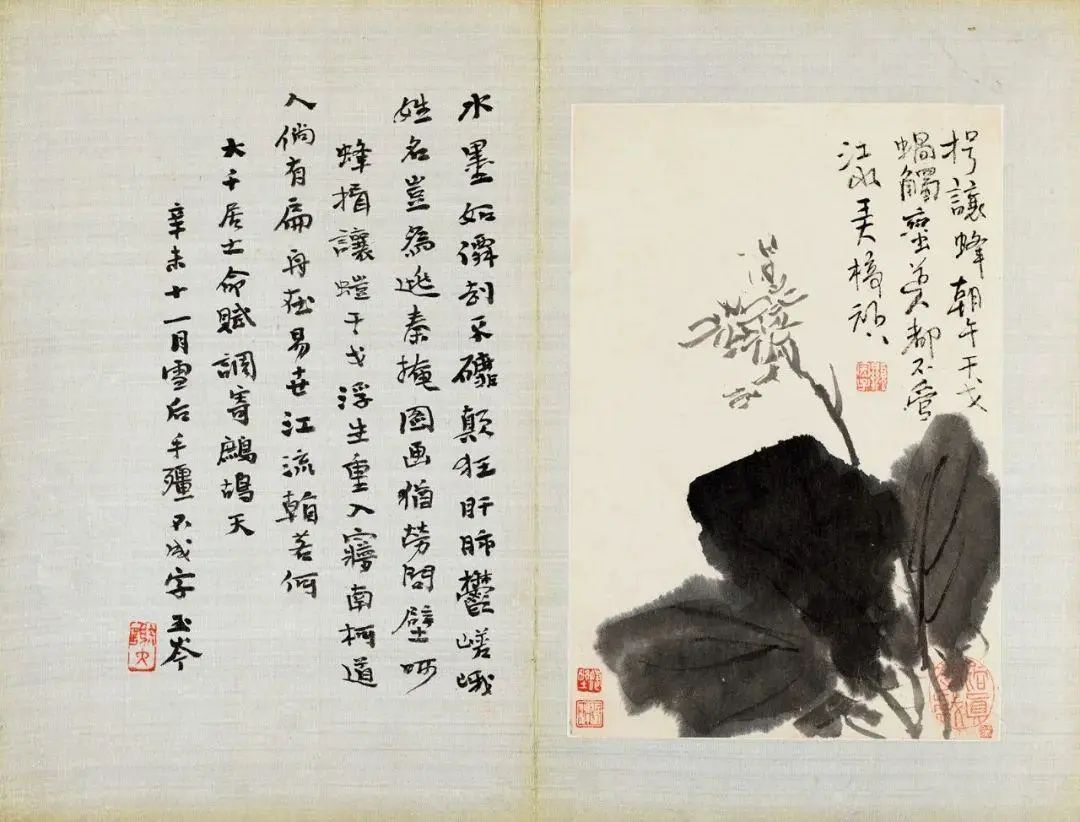 揖讓蜂朝午干戈
蝸觸蠻 都不管
江
水墨如 不 顛狂肝肺鬱嵯峨
姓名豈為逃秦掩圖画猶勞問壁呵
蜂揖讓螘干戈浮生重入寱南柯道
人倘有扁舟在易世江流 若何
大千居士命賦調寄鷓鴣天
辛未十一月雪后手殭不成字玉岑